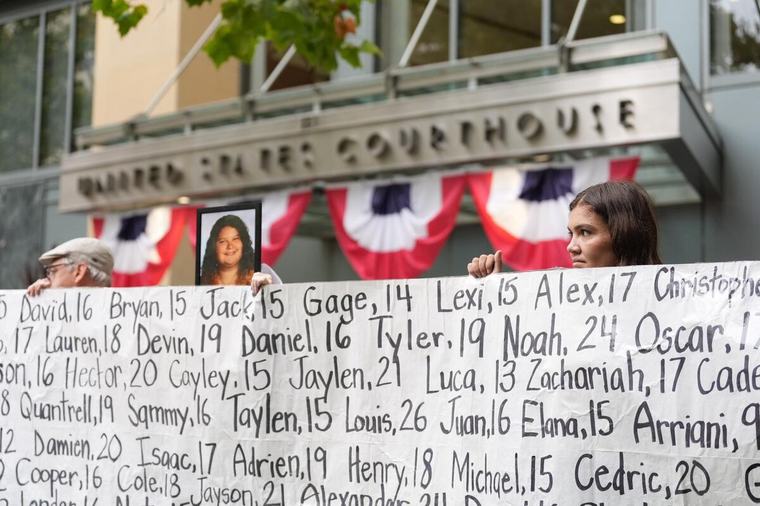 UNITED STATES COURTHOUSE
David, 16 Bryan, 15 Jack, 15 Gage, 14 Lexi, 15 Alex, 17 Christophe
Lauren, 18 Devin, 19 Daniel, 16 Tyler, 19 Noah, 24 Oscar, 17
son, 16 Hector, 20 Cayley, 15 Jaylen, 21 Luca, 13 Zachariah, 17 Cade
8 Quantrell, 19 Sammy, 16 Taylen, 15 Louis, 26 Juan, 16 Elana, 15 Arriani, 9
12 Damien, 20 Isaac, 17 Adrien, 19 Henry, 18 Michael, 15 Cedric, 20
Cooper, 16 Cole, 18 Jayson, 21 Alexander, 24